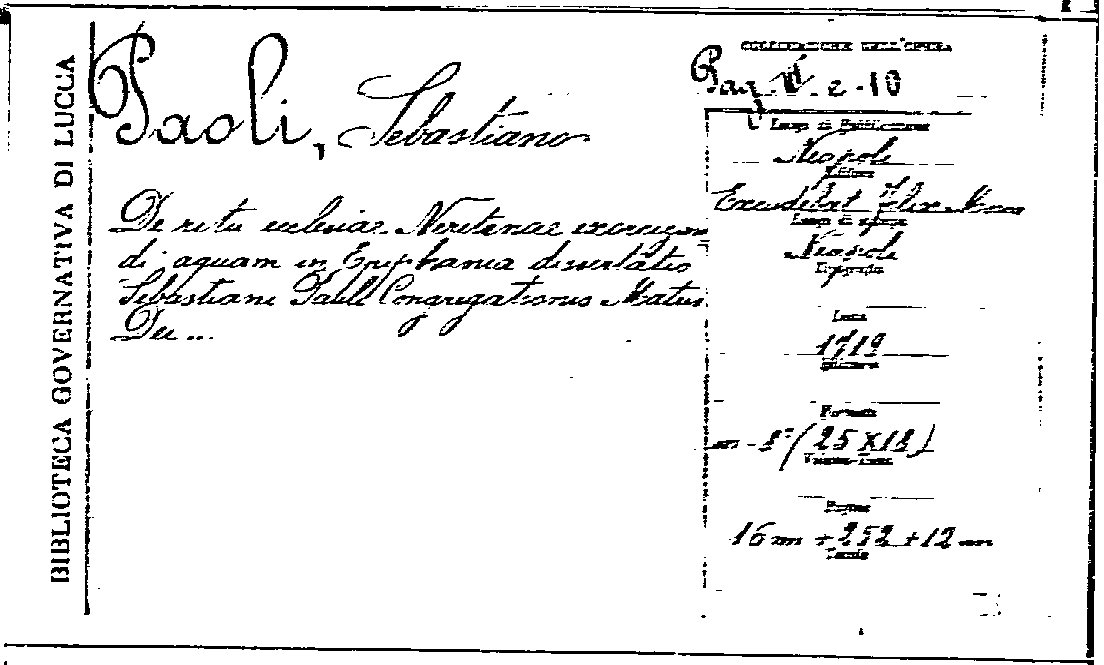 BIBLIOTECA GOVERNATIVA DI LUCCA
Paoli, Sebastiano
De ritu ecclesiae Neritinae exorcizan
di aquam in Epiphania dissertatio
Sebastiani Pauli Congregationis Matris
Dei ...
COLLOCAZIONE DELL'OPERA
Pag. e-10
Luogo di Pubblicazione
Neapoli
Editore
Excudebat Felix
Luogo di stampa
Neapoli
Tipografo
Data
1719
Formato
in-8° (25x18)
Pagine
16 nn + 252 + 12 nn
Tavole